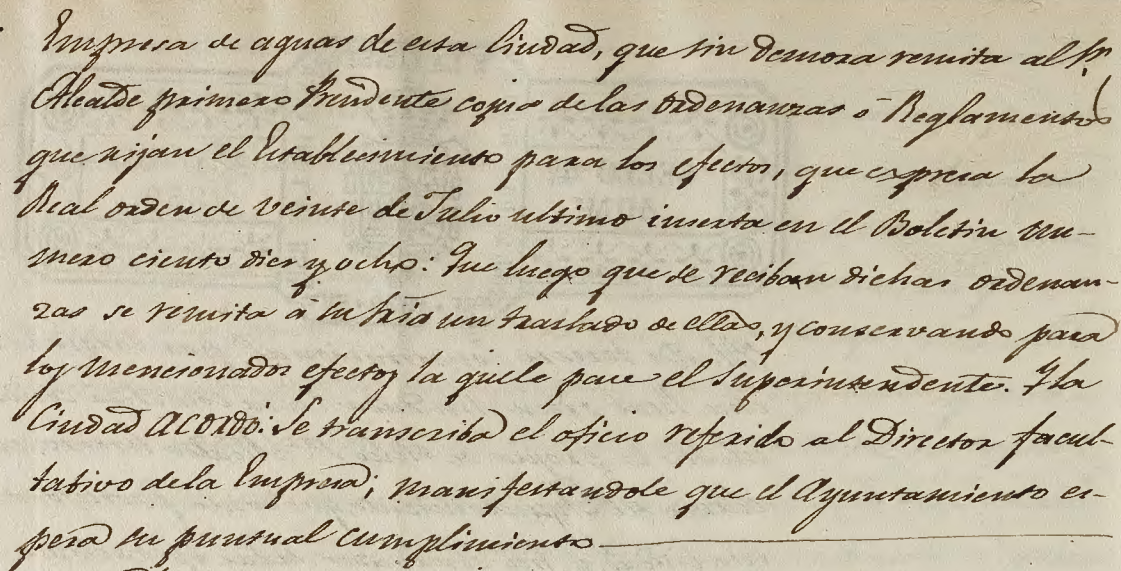 Empresa de aguas de esta Ciudad, que sin demora remita al Sr.
Alcalde primero Presidente copia de las ordenanzas ó Reglamentos
que rijan el Establecimiento para los efectos, que expresa la
Real orden de veinte de Julio ultimo inserta en el Boletin nu-
mero ciento diez y ocho: Que luego que se reciban dichas ordenan-
zas se remita á su Sria un traslado de ellas, y conservando para
los mencionados efectos la que le pase el Superintendente. Y la
Ciudad acordó: Se transcriba el oficio referido al Director facul-
tativo de la Empresa; manifestandole que el Ayuntamiento es-
pera su puntual cumplimiento